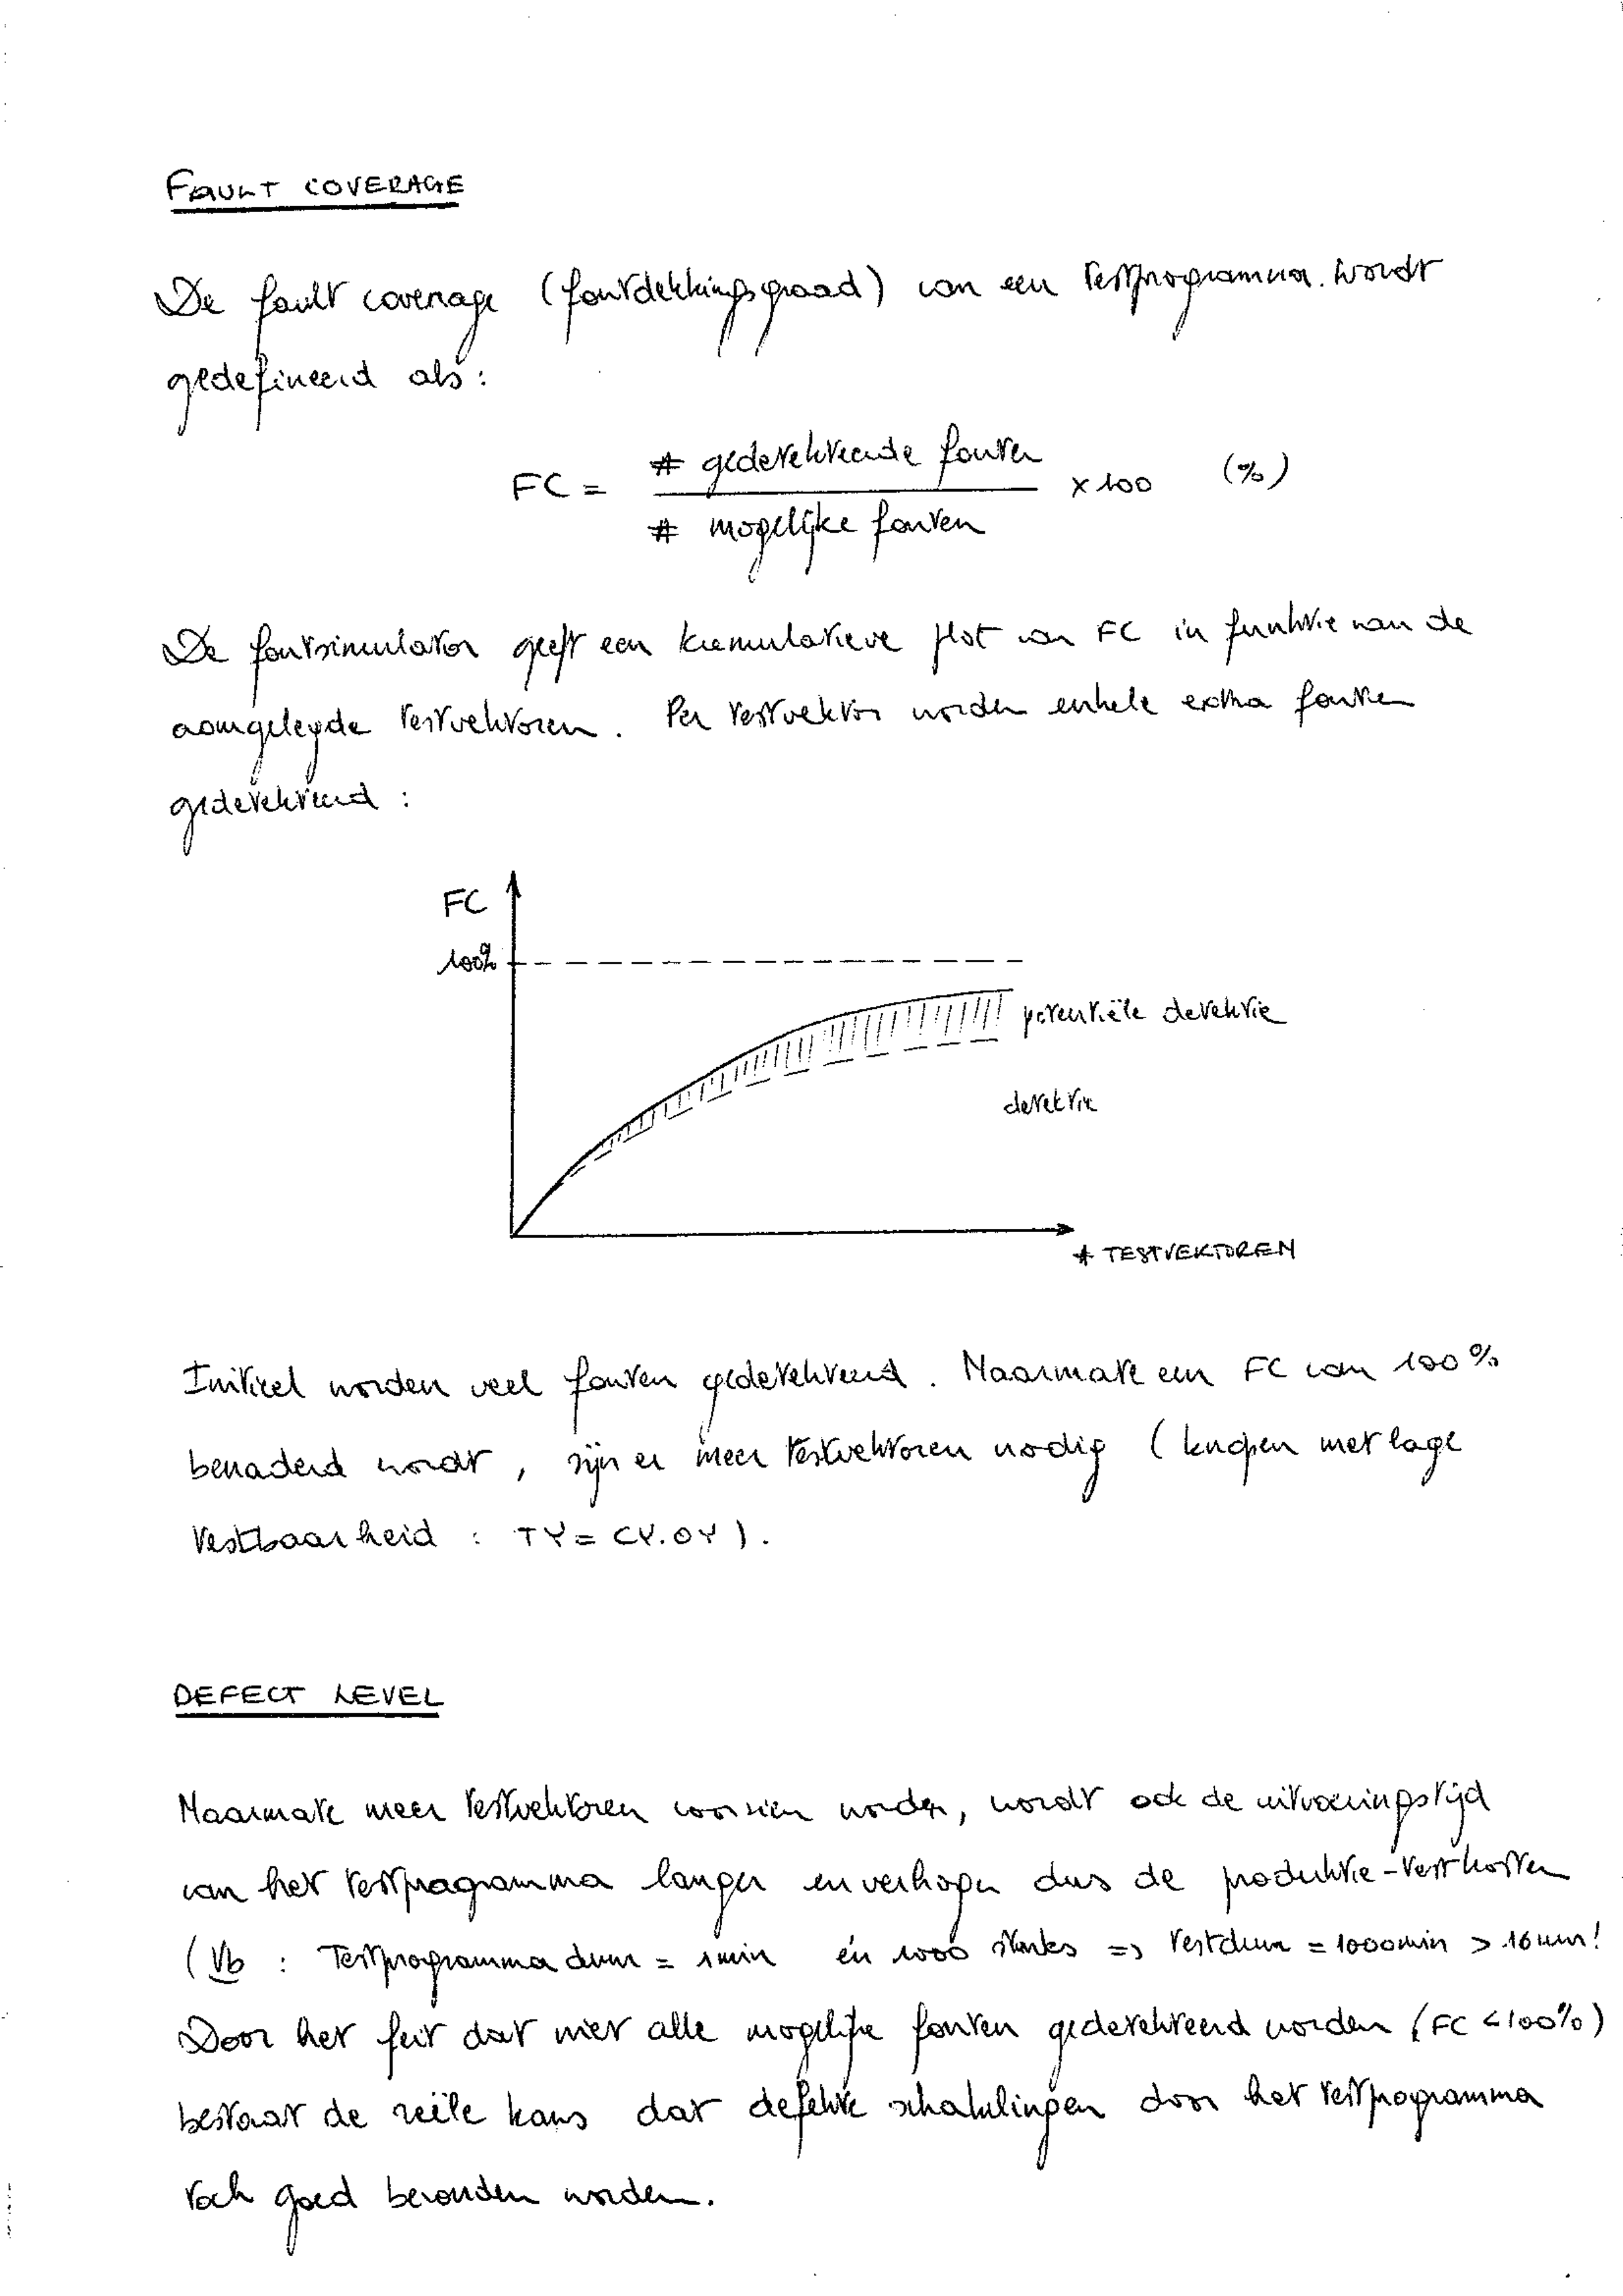 FAULT COVERAGE
De fault coverage (foutdekkingsgraad) van een testprogramma wordt
gedefineerd als:
FC = # gedetekteerde fouten / # mogelijke fouten x 100 (%)
De foutsimulator geeft een kumulatieve plot van FC in funktie van de
aangelegde testvektoren. Per testvektor worden enkele extra fouten
gedetekteerd :
FC
100%
potentiële detektie
detektie
# TESTVEKTOREN
Initieel worden veel fouten gedetekteerd. Naarmate een FC van 100%
benaderd wordt, zijn er meer testvektoren nodig (knopen met lage
testbaarheid : TY = CY.OY).
DEFECT LEVEL
Naarmate meer testvektoren voorzien worden, wordt ook de uitvoeringstijd
van het testprogramma langer en verhogen dus de produktie-testkosten
(Vb : Testprogramma duur = 1min én 1000 stuks => testduur = 1000min > 16 uur!
Door het feit dat niet alle mogelijke fouten gedetekteerd worden (FC < 100%)
bestaat de reële kans dat defekte schakelingen door het testprogramma
toch goed bevonden worden.